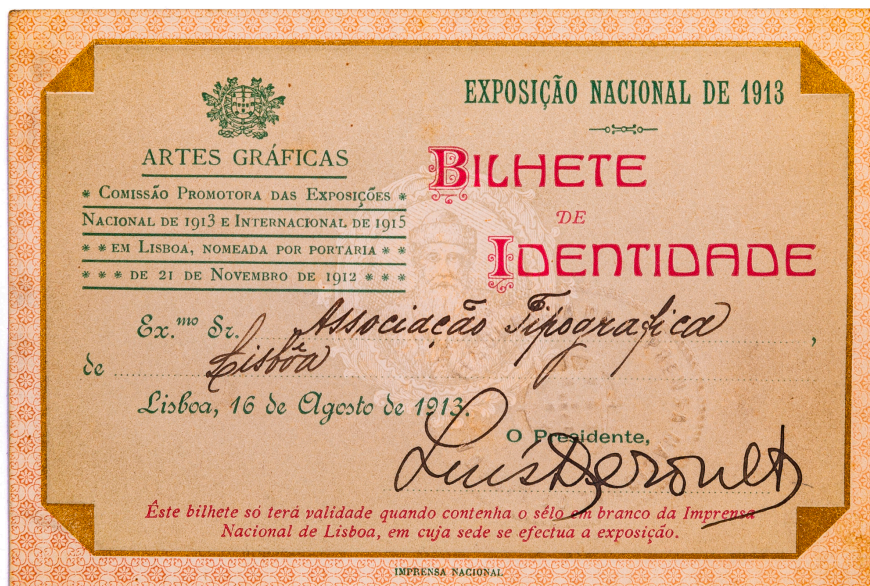 EXPOSIÇÃO NACIONAL DE 1913
ARTES GRÁFICAS
* COMISSÃO PROMOTORA DAS EXPOSIÇÕES *
NACIONAL DE 1913 E INTERNACIONAL DE 1915
* * EM LISBOA, NOMEADA POR PORTARIA * *
* * * DE 21 DE NOVEMBRO DE 1912 * * *
BILHETE
DE
IDENTIDADE
Ex.mo Sr. Associação Tipografica,
de Lisbôa
Lisboa, 16 de Agosto de 1913.
O Presidente,
Luís Derouet
Êste bilhete só terá validade quando contenha o sêlo em branco da Imprensa
Nacional de Lisboa, em cuja sede se efectua a exposição.
IMPRENSA NACIONAL